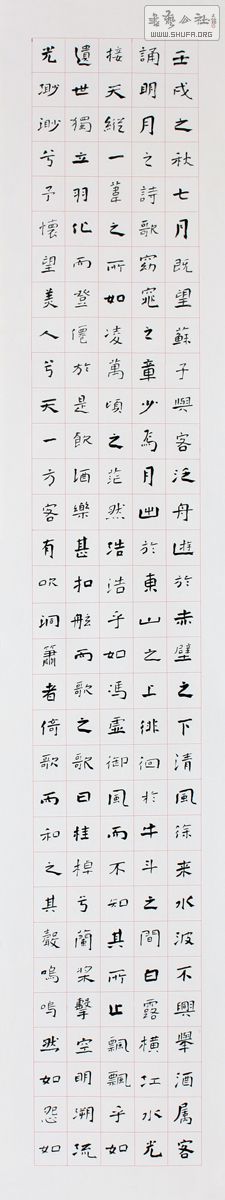 书艺公社
WWW.SHUFA.ORG
壬戌之秋七月既望蘇子與客泛舟遊於赤壁之下清風徐来水波不興舉酒属客
誦明月之詩歌窈窕之章少焉月出於東山之上徘徊於牛斗之間白露橫江水光
接天縱一葦之所如凌萬頃之茫然浩浩乎如馮虛御風而不知其所止飄飄乎如
遺世獨立羽化而登僊於是飲酒樂甚扣舷而歌之歌曰桂棹兮蘭槳擊空明溯流
光渺渺兮予懷望美人兮天一方客有吹洞簫者倚歌而和之其聲嗚嗚然如怨如